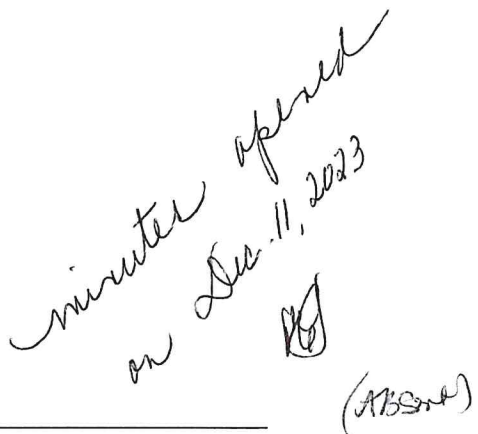 minutes opened
on Dec. 11, 2023
(ABSent)